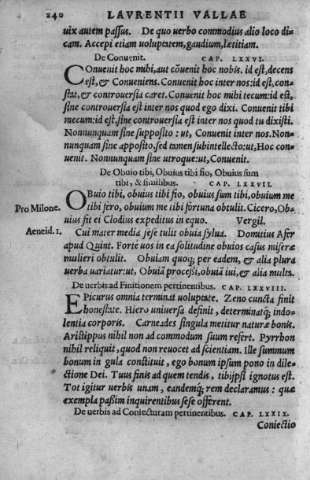 240 LAVRENTII VALLAE
uix autem passus. De quo uerbo commodius alio loco di-
cam. Accepi etiam uoluptatem, gaudium, lætitiam.
De Conuenit. CAP. LXXVI.
COnuenit hoc mihi, aut cōuenit hoc nobis. id est, decens
est, & Conueniens. Conuenit hoc inter nos: id est, con-
stat, & controuersia caret. Conuenit hoc mihi tecum: id est,
sine controuersia est inter nos quod ego dixi. Conuenit tibi
mecum: id est, sine controuersia est inter nos quod tu dixisti.
Nonnunquam sine supposito: ut, Conuenit inter nos. Non-
nunquam sine apposito, sed tamen subintellecto: ut, Hoc con-
uenit. Nonnunquam sine utroque: ut, Conuenit.
De Obuio tibi, Obuius tibi fio, Obuius sum
tibi, & similibus. CAP. LXXVII.
OBuio tibi, obuius tibi fio, obuius sum tibi, obuium me
Pro Milone. tibi fero, obuium me tibi fortuna obtulit. Cicero, Obu-
ius fit ei Clodius expeditus in equo. Vergil.
Aeneid. 1. Cui mater media sese tulit obuia sylua. Domitius Afer
apud Quint. Forte uos in ea solitudine obuios casus miseræ
mulieri obtulit. Obuiam quoq; per eadem, & alia plura
uerba uariatur: ut, Obuiā processi, obuiā iui, & alia multa.
De uerbis ad Finitionem pertinentibus. CAP. LXXVIII.
EPicurus omnia terminat uoluptate. Zeno cuncta finit
honestate. Hiero uniuersa definit, determinatq; indo-
lentia corporis. Carneades singula metitur naturæ bonis.
Aristippus nihil non ad commodum suum refert. Pyrrhon
nihil reliquit, quod non reuocet ad scientiam. Ille summum
bonum in gula constituit, ego bonum ipsum pono in dile-
ctione Dei. Tuus finis ad quem tendis, tibijpsi ignotus est.
Tot igitur uerbis unam, eandemq; rem declaramus: quæ
exempla passim inquirentibus sese offerent.
De uerbis ad Coniecturam pertinentibus. CAP. LXXIX.
Coniectio